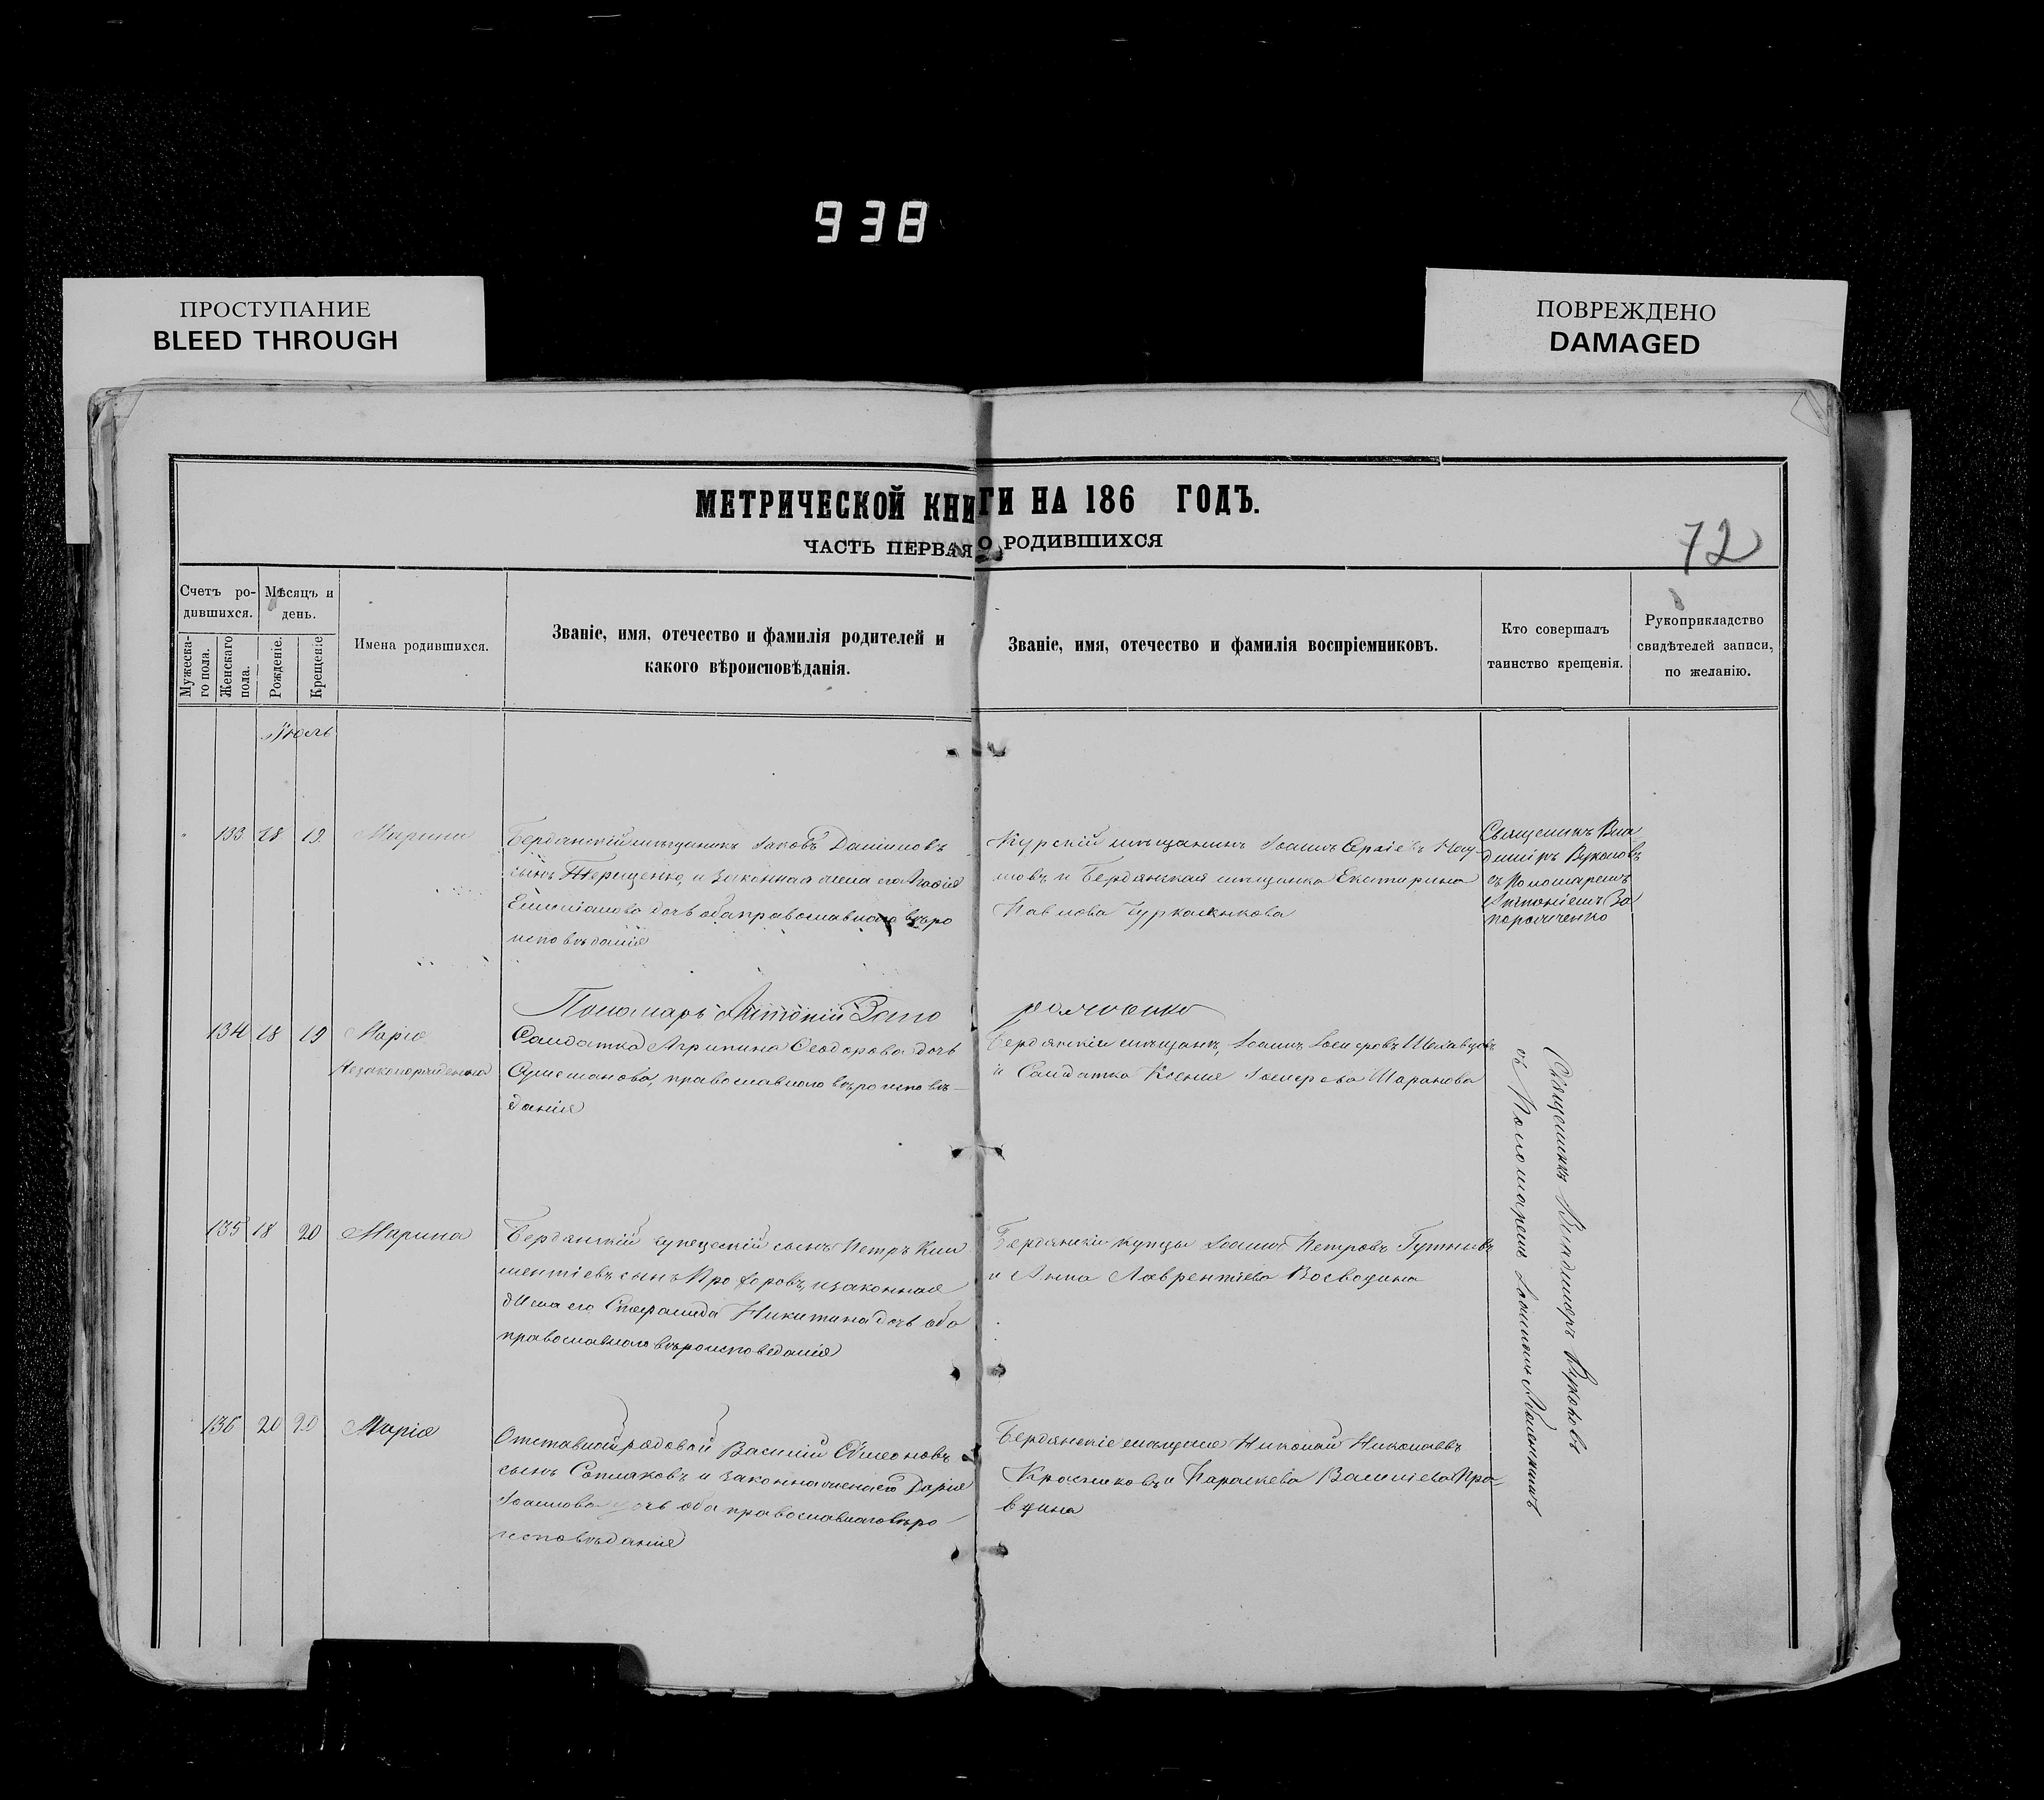 938
ПРОСТУПАНИЕ
BLEED THROUGH
ПОВРЕЖДЕНО
DAMAGED
МЕТРИЧЕСКОЙ КНИГИ НА 186 ГОДЪ.
ЧАСТЬ ПЕРВАЯ О РОДИВШИХСЯ
72
Счетъ ро-
дившихся.
Мужеска-
го пола.
Женскаго
пола.
Мѣсяцъ и
день.
Рожденіе.
Крещеніе
Имена родившихся.
Званіе, имя, отечество и фамилія родителей и
какого вѣроисповѣданія.
Званіе, имя, отечество и фамилія воспріемниковъ.
Кто совершалъ
таинство крещенія.
Рукоприкладство
свидѣтелей записи,
по желанію.
Іюль
133 18 19 Марина
Бердянскій мѣщанинъ Іаковъ Даніиловъ
сынъ Терещенко, и законная жена его Агафія
дочь оба православнаго вѣро
исповѣданія
Курскій мѣщанинъ Іоаннъ
мовъ и Бердянская мѣщанка Екатерина
Павлова
Священникъ Вла
димiръ Жуковъ
съ Пономаремъ
Антоніемъ За
порожченко
Пономарь Антоній Запо
рожченко
134 18 19 Марія
Незаконорожденная
Солдатка Агрипина Ѳеодорова дочь
православнаго вѣроисповѣ-
данія
Бердянскій мѣщанинъ, Іоаннъ
и Солдатка Ксенія Шаранова
135 18 20 Марина
Бердянскій купецкій сынъ Петръ Кли
ментіевъ сынъ Прохоровъ, и законная
жена его Никитина дочь оба
православнаго вѣроисповеданія
Бердянскіе купцы Іоаннъ Петровъ
и Анна Лаврентіева Воеводина
136 20 20 Марія
Отставной рядовой Василій Сѵмеоновъ
сынъ Сопляковъ и законная жена его Дарія
Іоаннова дочь оба православнаго вѣро
исповѣданія
Бердянскіе мѣщане Николай Николаевъ
Красниковъ и Параскева Пра-
вдина
Священникъ Владимиръ Жуковъ
съ Пономаремъ Іоанномъ